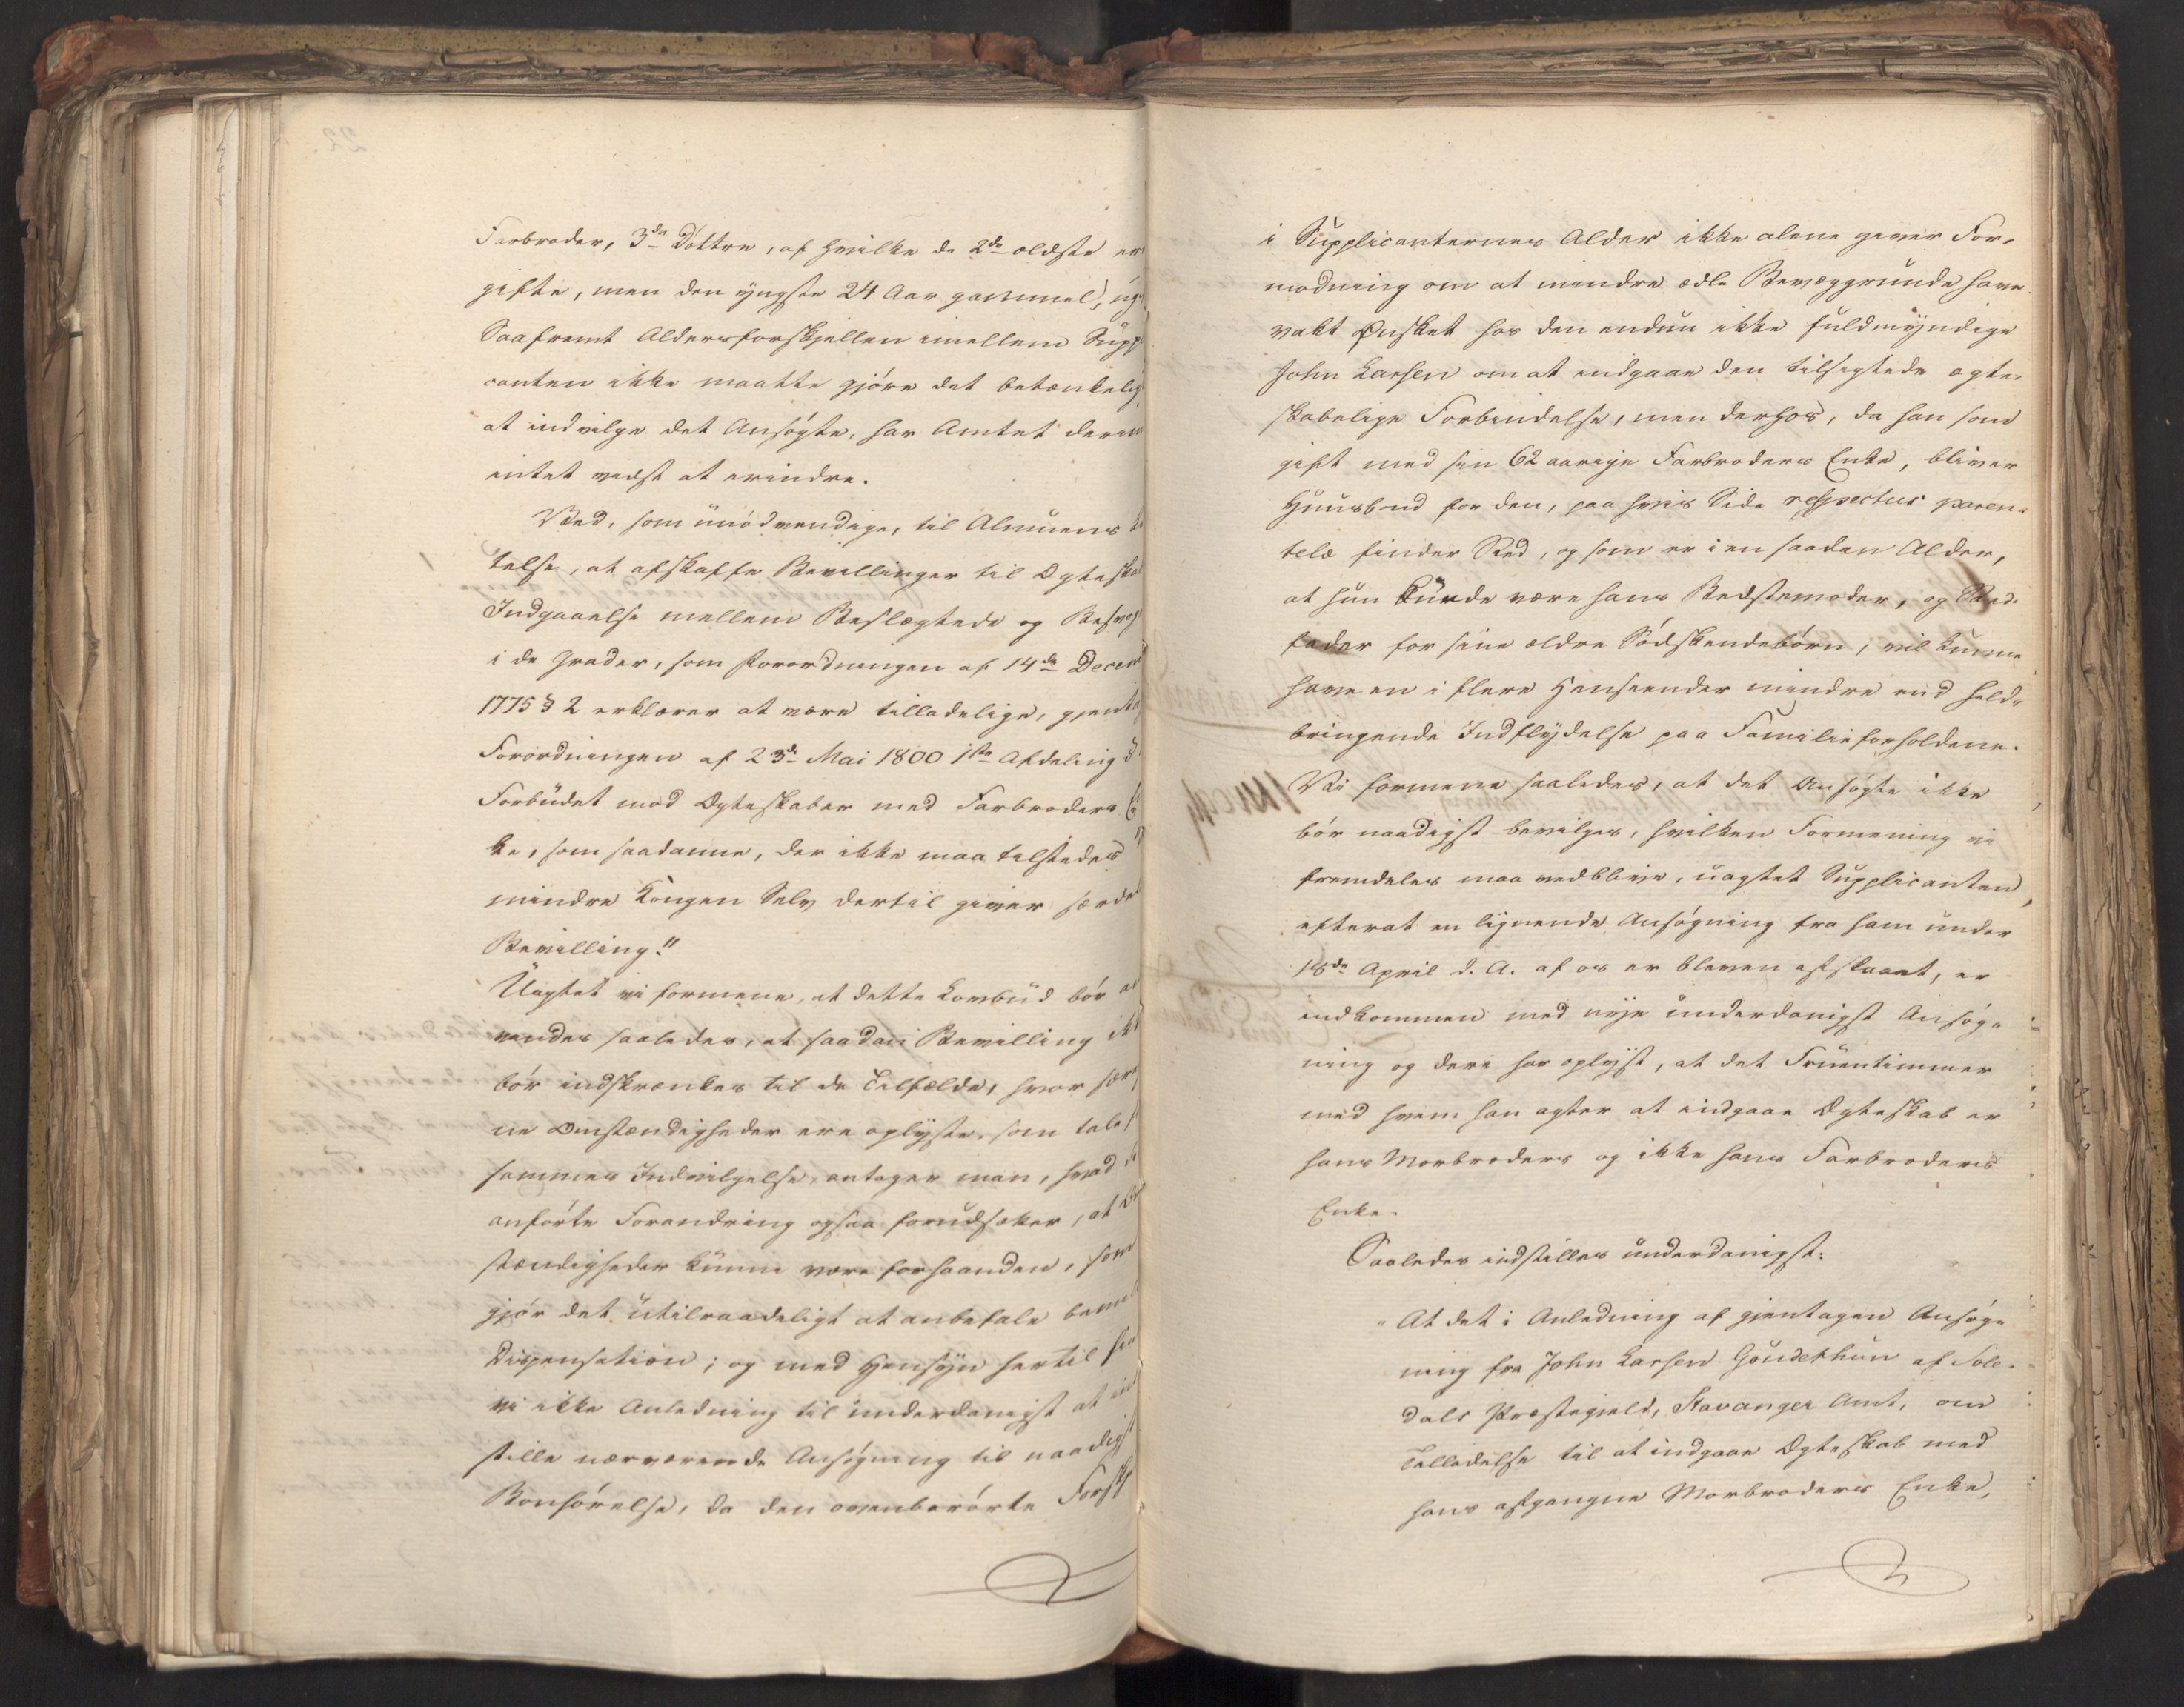 Farbroder, 3de Døttre, af hvilke de 2de ældste er
gifte, men den yngste 24 Aar gammel), og
Saafremt Aldersforskjellen imellem Supp
canten ikke maatte gjøre det betænkelig
at indvilge det Ansøgte, har Amtet derim
intet vidst at erindre.
Ved, som unødvendige, til Almuens
telse, at afskaffe Bevillinger til Ægteska
Indgaaelse mellem Beslægtede og Besvog
i de Grader, som Forordningen af 14de Decem
1775 § 2 erklærer at være tilladelige, gjentog
Forordningen af 23de Mai 1800 1ste Afdeling
Forbudet mod Ægteskaber med Farbroders E
ke, som saadanne, der ikke maa tilstedes
mindre Kongen Selv dertil giver særde
Bevilling."
Uagtet vi formene, at dette Lovbud bør an
vendes saaledes, at saadan Bevilling ikk
bør indskrænkes til de Tilfælde, hvor sær
ne Omstændigheder ere oplyste, som tale f
sammes Indvilgelse, antager man, hvad
anførte Forandring ogsaa forudsætter, at Om
stændigheder kunne være forhaanden, som
gjør det utilraadeligt at anbefale bem
Dispensation; og med Hensyn hertil
vi ikke Anledning til underdanigst at ind
stille nærværende Ansøgning til naadigst
Bønhørelse, da den ovenberørte Forskj
i Supplicanternes Alder ikke alene giver For-
modning om at mindre ædle Bevæggrunde have
vakt Ønsket hos den endnu ikke fuldmyndige
John Larsen om at indgaae den tilsigtede ægte-
skabelige Forbindelse, men derhos, da han som
gift med sin 62 aarige Farbroders Enke, bliver
Huusbond for den, paa hvis Side respectus paren-
telæ finder Sted, og som er i en saadan Alder,
at hun kunde være hans Bedstemoder, og Sted-
fader for sine ældre Sødskendebørn, vil kunne
have en i flere Henseender mindre end held-
bringende Indflydelse paa Familieforholdene.
Vi formene saaledes, at det Ansøgte ikke
bør naadigst bevilges, hvilken Formening vi
fremdeles maa vedblive, uagtet Supplicanten,
efterat en lignende Ansøgning fra ham under
18de April d. A. af os er bleven afslaaet, er
indkommen med nye underdanigst Ansøg-
ning og deri har oplyst, at det Fruentimmer
med hvem han agter at indgaae Ægteskab er
hans Morbroders og ikke hans Farbroders
Enke.
Saaledes indstilles underdanigst:
"At det i Anledning af gjentagen Ansøg-
ning fra John Larsen Goudekhun af Sole-
dals Præstegjeld, Stavanger Amt, om
Tilladelse til at indgaae Ægteskab med
hans afgangne Morbroders Enke,